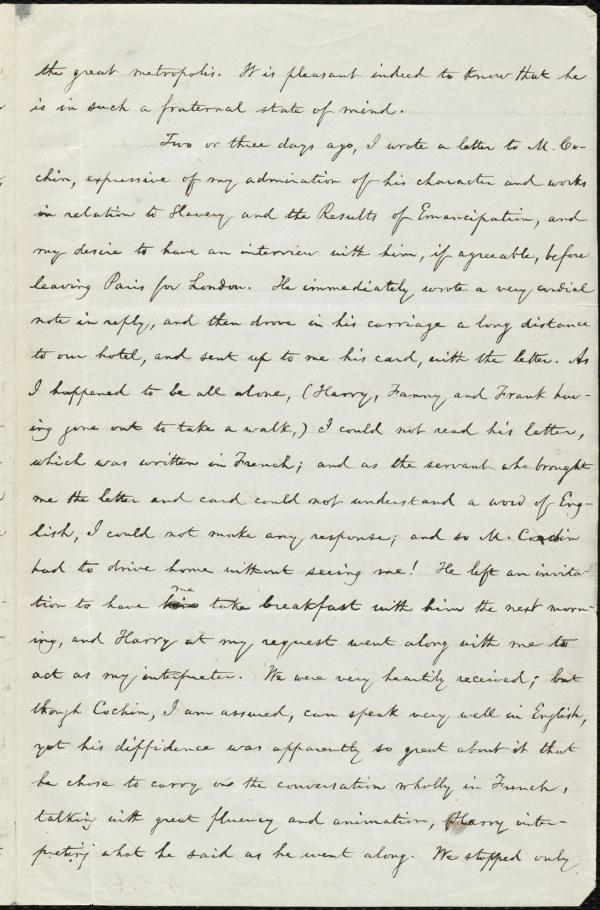 the great metropolis. It is pleasant indeed to know that he
is in such a fraternal state of mind.
Two or three days ago, I wrote a letter to M. Co-
chin, expressive of my admiration of his character and works
in relation to Slavery and the Results of Emancipation, and
my desire to have an interview with him, if agreeable, before
leaving Paris for London. He immediately wrote a very cordial
note in reply, and then drove in his carriage a long distance
to our hotel, and sent up to me his card, with the letter. As
I happened to be all alone, (Harry, Fanny and Frank hav-
ing gone out to take a walk,) I could not read his letter,
which was written in French; and as the servant who brought
me the letter and card could not understand a word of Eng-
lish, I could not make any response; and so M. Cochin
had to drive home without seeing me! He left an invita-
tion to have me take breakfast with him the next morn-
ing, and Harry at my request went along with me to
act as my interpreter. We were very heartily received; but
though Cochin, I am assured, can speak very well in English,
yet his diffidence was apparently so great about it that
he chose to carry on the conversation wholly in French,
talking with great fluency and animation, Harry inter-
preting what he said as he went along. We stopped only